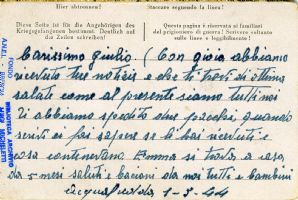 Hier abtrennen!
Staccare seguendo la linea!
Diese Seite ist für die Angehörigen des
Kriegsgefangenen bestimmt. Deutlich auf
die Zeilen schreiben!
Questa pagina è riservata ai familiari
del prigioniero di guerra! Scrivere soltanto
sulle linee e leggibilmente!
Carissimo Giulio. Con gioia abbiamo
ricevuto tue notizie e che ti trovi di ottima
salute come al presente siamo tutti noi
Ti abbiamo spedito due pacchi quando
scrivi ci fai sapere se li hai ricevuti e
cosa contenevano. Emma si trova a casa
da 5 mesi saluti e baciani da noi tutti e bambini
1-3-44
FONDO
BIBLIOTECA ARCHIVIO
MICHELETTI